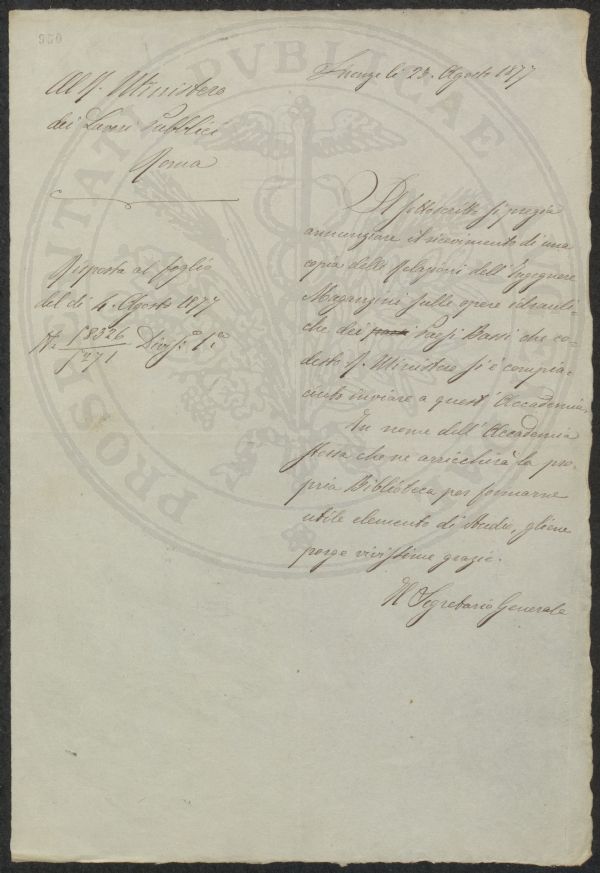 Firenze li 23. Agosto 1877
Al R. Ministero
dei Lavori Pubblici
Roma
Risposta al foglio
del dì 4. Agosto 1877
N. 18326/1271 Divis.e 1.a
Il sottoscritto si pregia
annunziare il ricevimento di una
copia delle Relazioni dell'Ingegnere
Maganzini sulle opere idrauli-
che dei Paesi Bassi che co-
desto R. Ministero si è compia-
ciuto inviare a quest'Accademia.
In nome dell'Accademia
stessa che ne arricchirà la pro-
pria Biblioteca per formarne
utile elemento di studio, gliene
porge vivissime grazie.
Il Segretario Generale